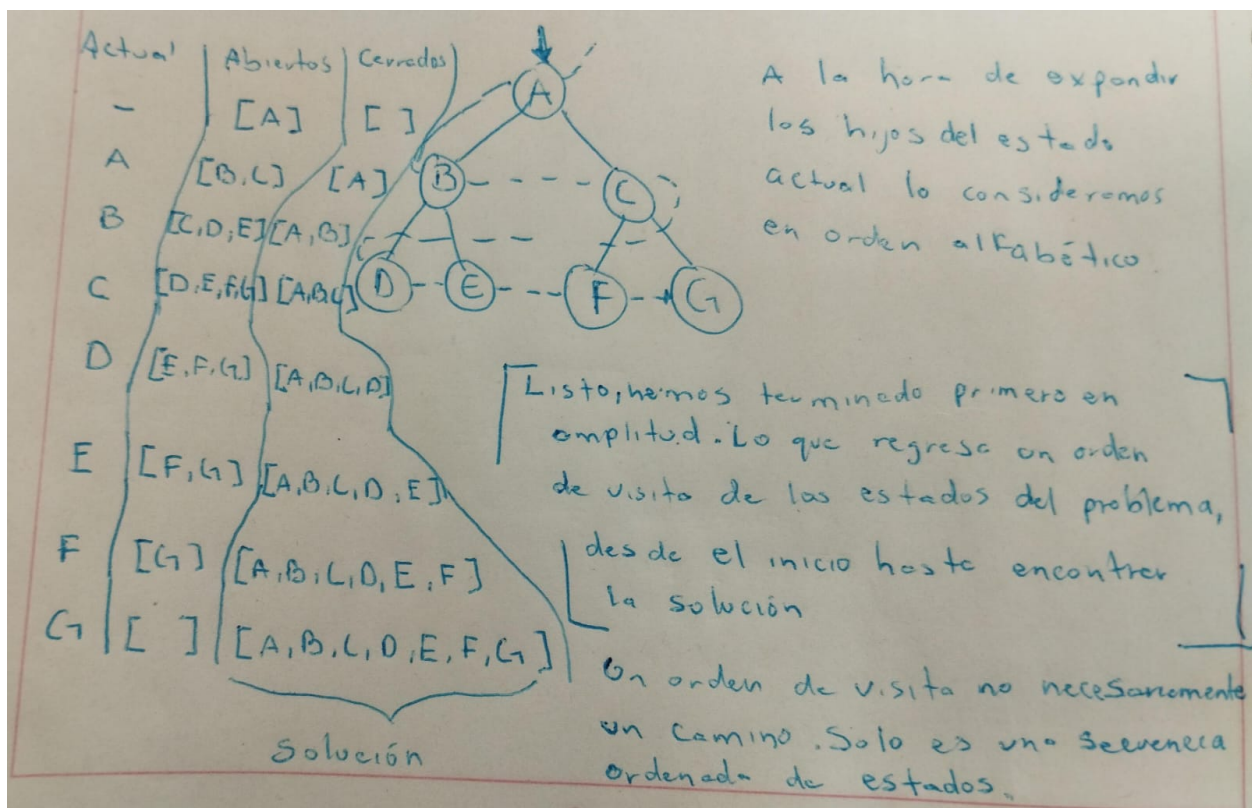 Actual Abiertos Cerrados
- [A] [ ]
A [B,C] [A]
B [C,D,E] [A,B]
C [D,E,F,G] [A,B,C]
D [E,F,G] [A,B,C,D]
E [F,G] [A,B,C,D,E]
F [G] [A,B,C,D,E,F]
G [ ] [A,B,C,D,E,F,G]
Solución
A
B C
D E F G
A la hora de expandir
los hijos del estado
actual lo consideremos
en orden alfabético
Listo, hemos terminado primero en
amplitud. Lo que regresa un orden
de visita de los estados del problema,
desde el inicio hasta encontrar
la solución
Un orden de visita no necesariamente
un camino. Solo es una
ordenada de estados.